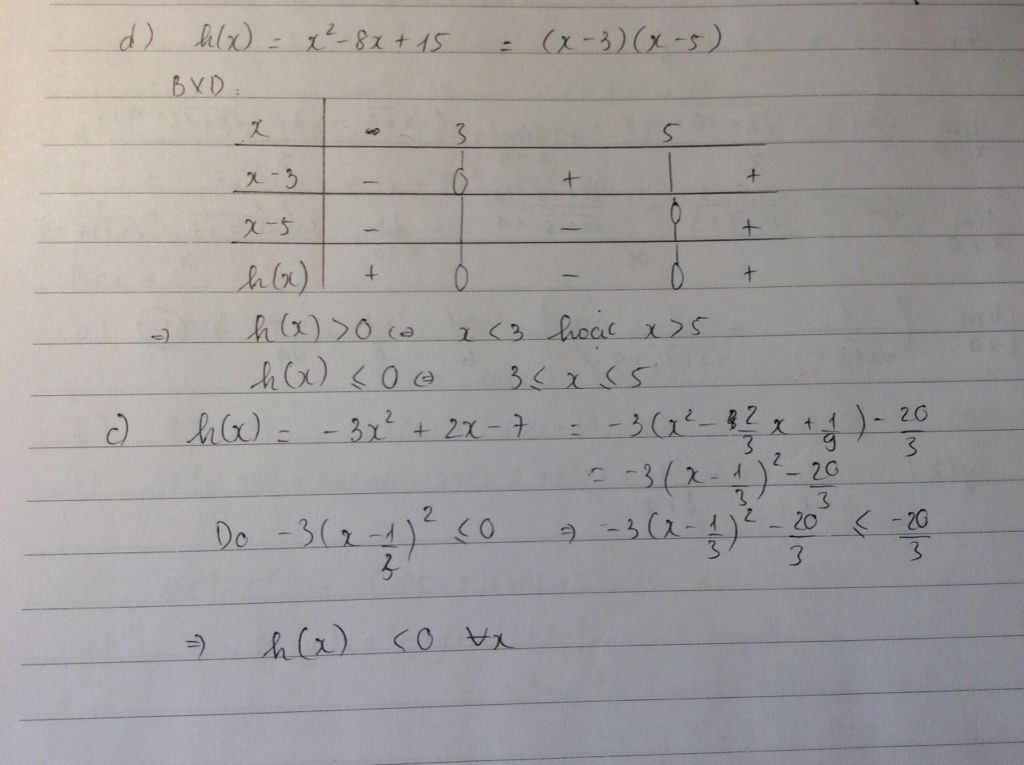 d) h(x) = x² - 8x + 15 = (x - 3)(x - 5)
BXD:
x | -∞ 3 5
x - 3 | - 0 + | +
x - 5 | - | - 0 +
h(x) | + 0 - 0 +
⇒ h(x) > 0 ⇔ x < 3 hoặc x > 5
h(x) ≤ 0 ⇔ 3 ≤ x ≤ 5
c) h(x) = -3x² + 2x - 7 = -3(x² - 2/3 x + 1/9) - 20/3
= -3(x - 1/3)² - 20/3
Do -3(x - 1/3)² ≤ 0 ⇒ -3(x - 1/3)² - 20/3 ≤ -20/3
⇒ h(x) < 0 ∀x